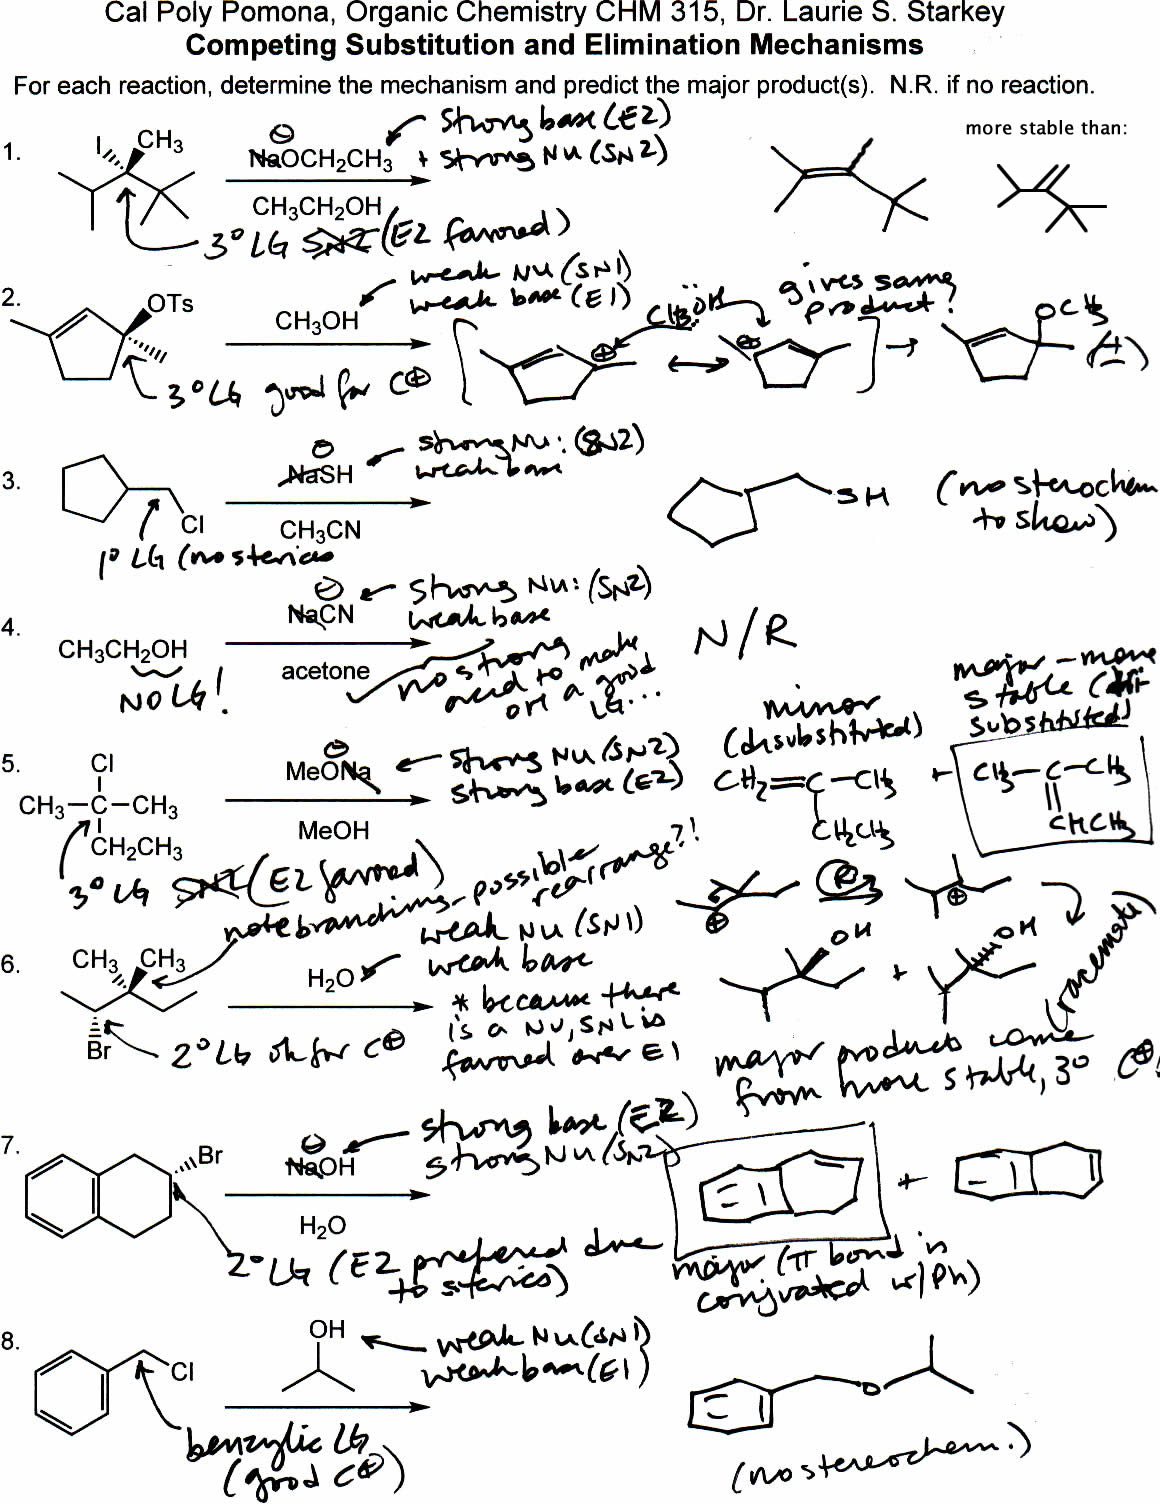 Cal Poly Pomona, Organic Chemistry CHM 315, Dr. Laurie S. Starkey
Competing Substitution and Elimination Mechanisms
For each reaction, determine the mechanism and predict the major product(s). N.R. if no reaction.
1.
I
CH₃
⊖
NaOCH₂CH₃
CH₃CH₂OH
strong base (E2)
+ strong Nu (SN2)
more stable than:
3° LG SN2 (E2 favored)
2.
OTs
CH₃OH
weak Nu (SN1)
weak base (E1)
CH₃ÖH
gives same
product!
OCH₃
(±)
3° LG good for C⊕
3.
Cl
⊖
NaSH
CH₃CN
strong Nu: (SN2)
weak base
SH
(no sterochem
to show)
1° LG (no sterics
4.
CH₃CH₂OH
NO LG!
⊖
NaCN
acetone
strong Nu: (SN2)
weak base
no strong
acid to make
OH a good
LG...
N/R
5.
Cl
CH₃–C–CH₃
CH₂CH₃
⊖
MeONa
MeOH
strong Nu (SN2)
strong base (E2)
minor
(disubstituted)
CH₂=C–CH₃
CH₂CH₃
+
major – more
stable (tri-
substituted)
CH₃–C–CH₃
CHCH₃
3° LG SN2 (E2 favored)
6.
note branching – possible
rearrange?!
CH₃ CH₃
Br
H₂O
weak Nu (SN1)
weak base
* because there
is a Nu, SN1 is
favored over E1
2° LG ok for C⊕
⊕
⊕
OH
+
OH
(racemate)
major products come
from more stable, 3° C⊕!
7.
Br
⊖
NaOH
H₂O
strong base (E2)
strong Nu (SN2)
+
2° LG (E2 prefered due
to sterics)
major (π bond is
conjvated w/Ph)
8.
Cl
OH
weak Nu (SN1)
weak base (E1)
O
benzylic LG
(good C⊕)
(no stereochem.)